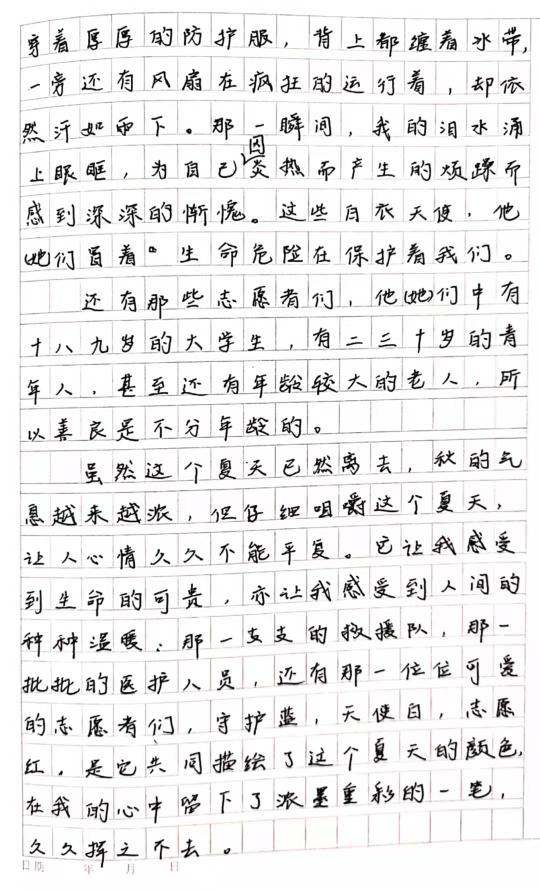 穿着厚厚的防护服，背上都缠着水带，
一旁还有风扇在疯狂的运行着，却依
然汗如雨下。那一瞬间，我的泪水涌
上眼眶，为自己因炎热而产生的烦躁而
感到深深的惭愧。这些白衣天使，他
(她)们冒着生命危险在保护着我们。
还有那些志愿者们，他(她)们中有
十八九岁的大学生，有二三十岁的青
年人，甚至还有年龄较大的老人，所
以善良是不分年龄的。
虽然这个夏天已然离去，秋的气
息越来越浓，但仔细咀嚼这个夏天，
让人心情久久不能平复。它让我感受
到生命的可贵，亦让我感受到人间的
种种温暖：那一支支的救援队，那一
批批的医护人员，还有那一位位可爱
的志愿者们，守护蓝，天使白，志愿
红，是它共同描绘了这个夏天的颜色，
在我的心中留下了浓墨重彩的一笔，
久久挥之不去。
日期 年 月 日